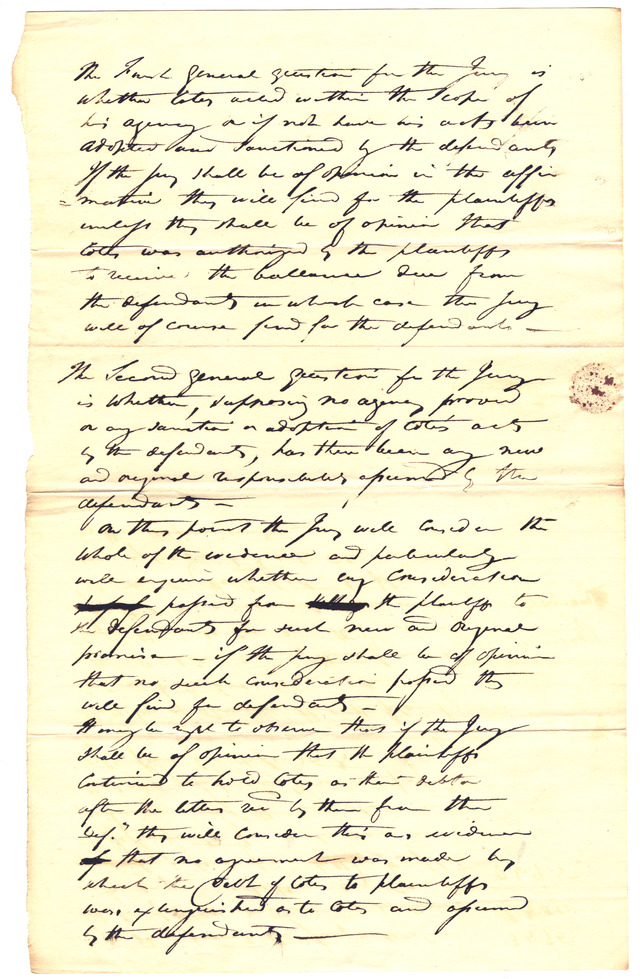 The First general question for the Jury is
whether Cotes acted within the scope of
his agency or if not have his acts been
adopted and sanctioned by the defendants
If the jury shall be of opinion in the affir
=mative they will find for the plaintiffs
unless they shall be of opinion that
Cotes was authorized by the plaintiffs
to receive the ballance due from
the defendants in which case the Jury
will of course find for the defendants —
The Second general question for the Jury
is whether, supposing no agency proved
or any sanction or adoption of Cotes acts
by the defendants, has there been any new
and original responsibility assumed by the
defendants —
On this point the Jury will consider the
whole of the evidence and particularly
will enquire whether any consideration
passed from the plaintiffs to
the Defendants for such new and original
promise — if the jury shall be of opinion
that no such consideration passed they
will find for defendants —
It may be right to observe that if the Jury
shall be of opinion that the plaintiffs
continued to hold Cotes as their debtor
after the letter recd by them from the
Defts they will consider this as evidence
that no agreement was made by
which the Debt of Cotes to plaintiffs
was extinguished as to Cotes and assumed
by the defendants —